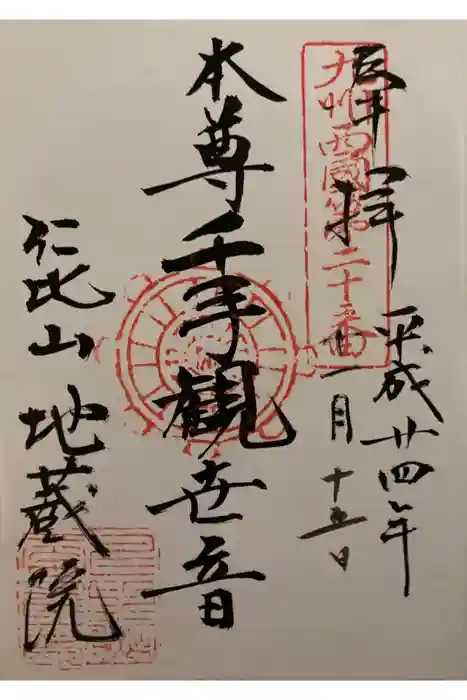 九州西國第二十番
奉拝
平成廿四年
十一月
十五日
本尊千手観世音
仁比山 地蔵院